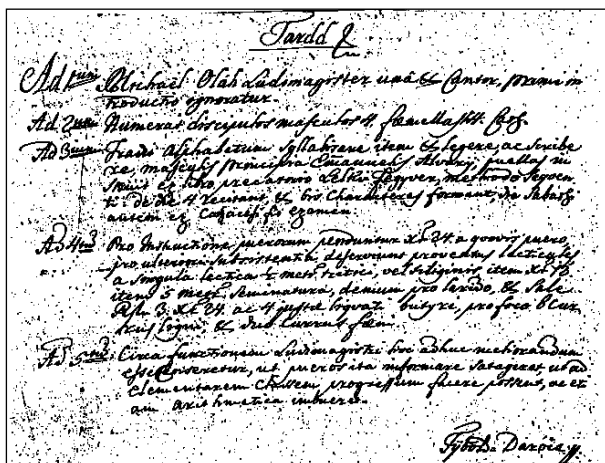 Tardd
Ad 1mum Michaël Oláh Ludimagister una & Cantor, primi in
troductio ignoratur.
Ad 2dum Numerat discipulos masculos 4, fœmellas Cath.
Ad 3tium Tradit Alphabetum Syllabisare item & legere, ac scribe
re, masculis principia Emanuelis Alvary, puellas in
struit ex libro precatorio Lelki Fegyver, methodo sequen
ti de die 4 recitant, & bis Characteres formant, die Sabathi
autem ex Catechesi fit examen.
Ad 4tum Pro Instructione puerorum penduntur xr 24 a quovis puero,
pro ulteriori subsistentia deserviunt proventus lecticales
a singula lectica ½ metr. tritici, vel siliginis, item xr 12
item 5 metr. seminatura, demum pro larido, & sale
Rfl. 3 xr 24 ac 4 justæ liquati butyri, pro foco 8 Cur
rus ligni & duo Currus fœni.
Ad 5tum Circa functionem Ludimagistri hoc adhuc memorandum
esse censeretur, ut pueros ita informare satageret, ut ad
elementarem Classem progressum facere possent, ac et
iam arithmetica imbueret.